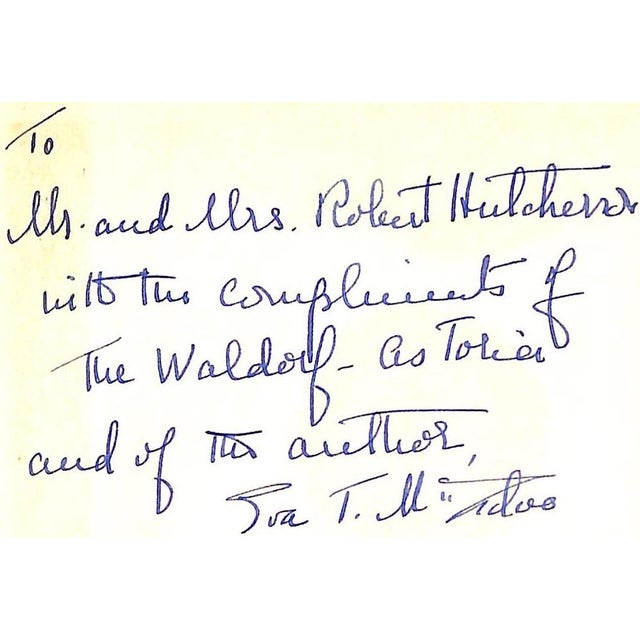 To
Mr. and Mrs. Robert Hutcherson
with the compliments of
The Waldorf - Astoria
and of the author,
Eva T. McAdoo